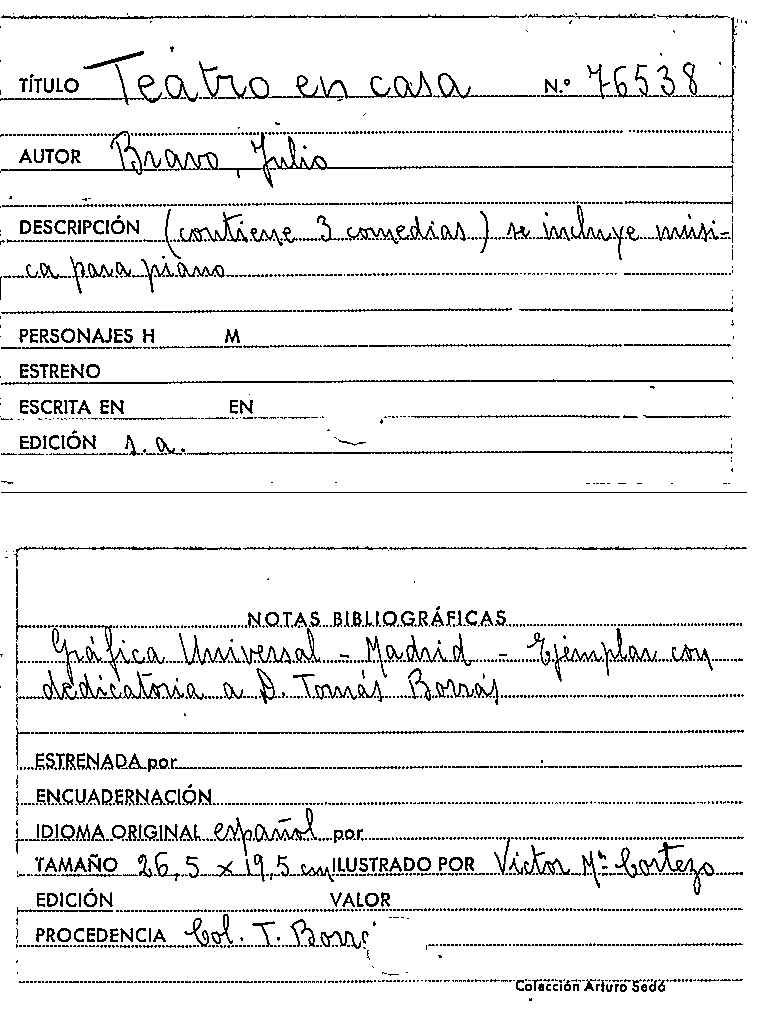 TÍTULO Teatro en casa N.º 76538
AUTOR Bravo, Julio
DESCRIPCIÓN (contiene 3 comedias) se incluye músi-
ca para piano
PERSONAJES H M
ESTRENO
ESCRITA EN EN
EDICIÓN s.a.
NOTAS BIBLIOGRÁFICAS
Gráfica Universal - Madrid - Ejemplar con
dedicatoria a D. Tomás Borrás
ESTRENADA por
ENCUADERNACIÓN
IDIOMA ORIGINAL español por
TAMAÑO 26,5 x 19,5 cm ILUSTRADO POR Victor Mª Cortezo
EDICIÓN VALOR
PROCEDENCIA Col. T. Borrá
Colección Arturo Sedó